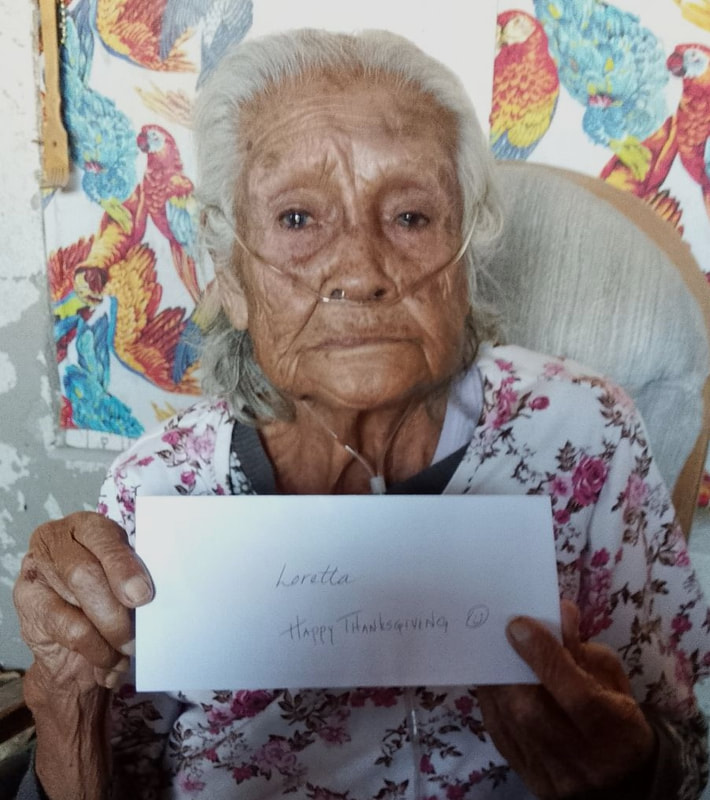 Loretta
HAPPY THANKSGIVING ☺